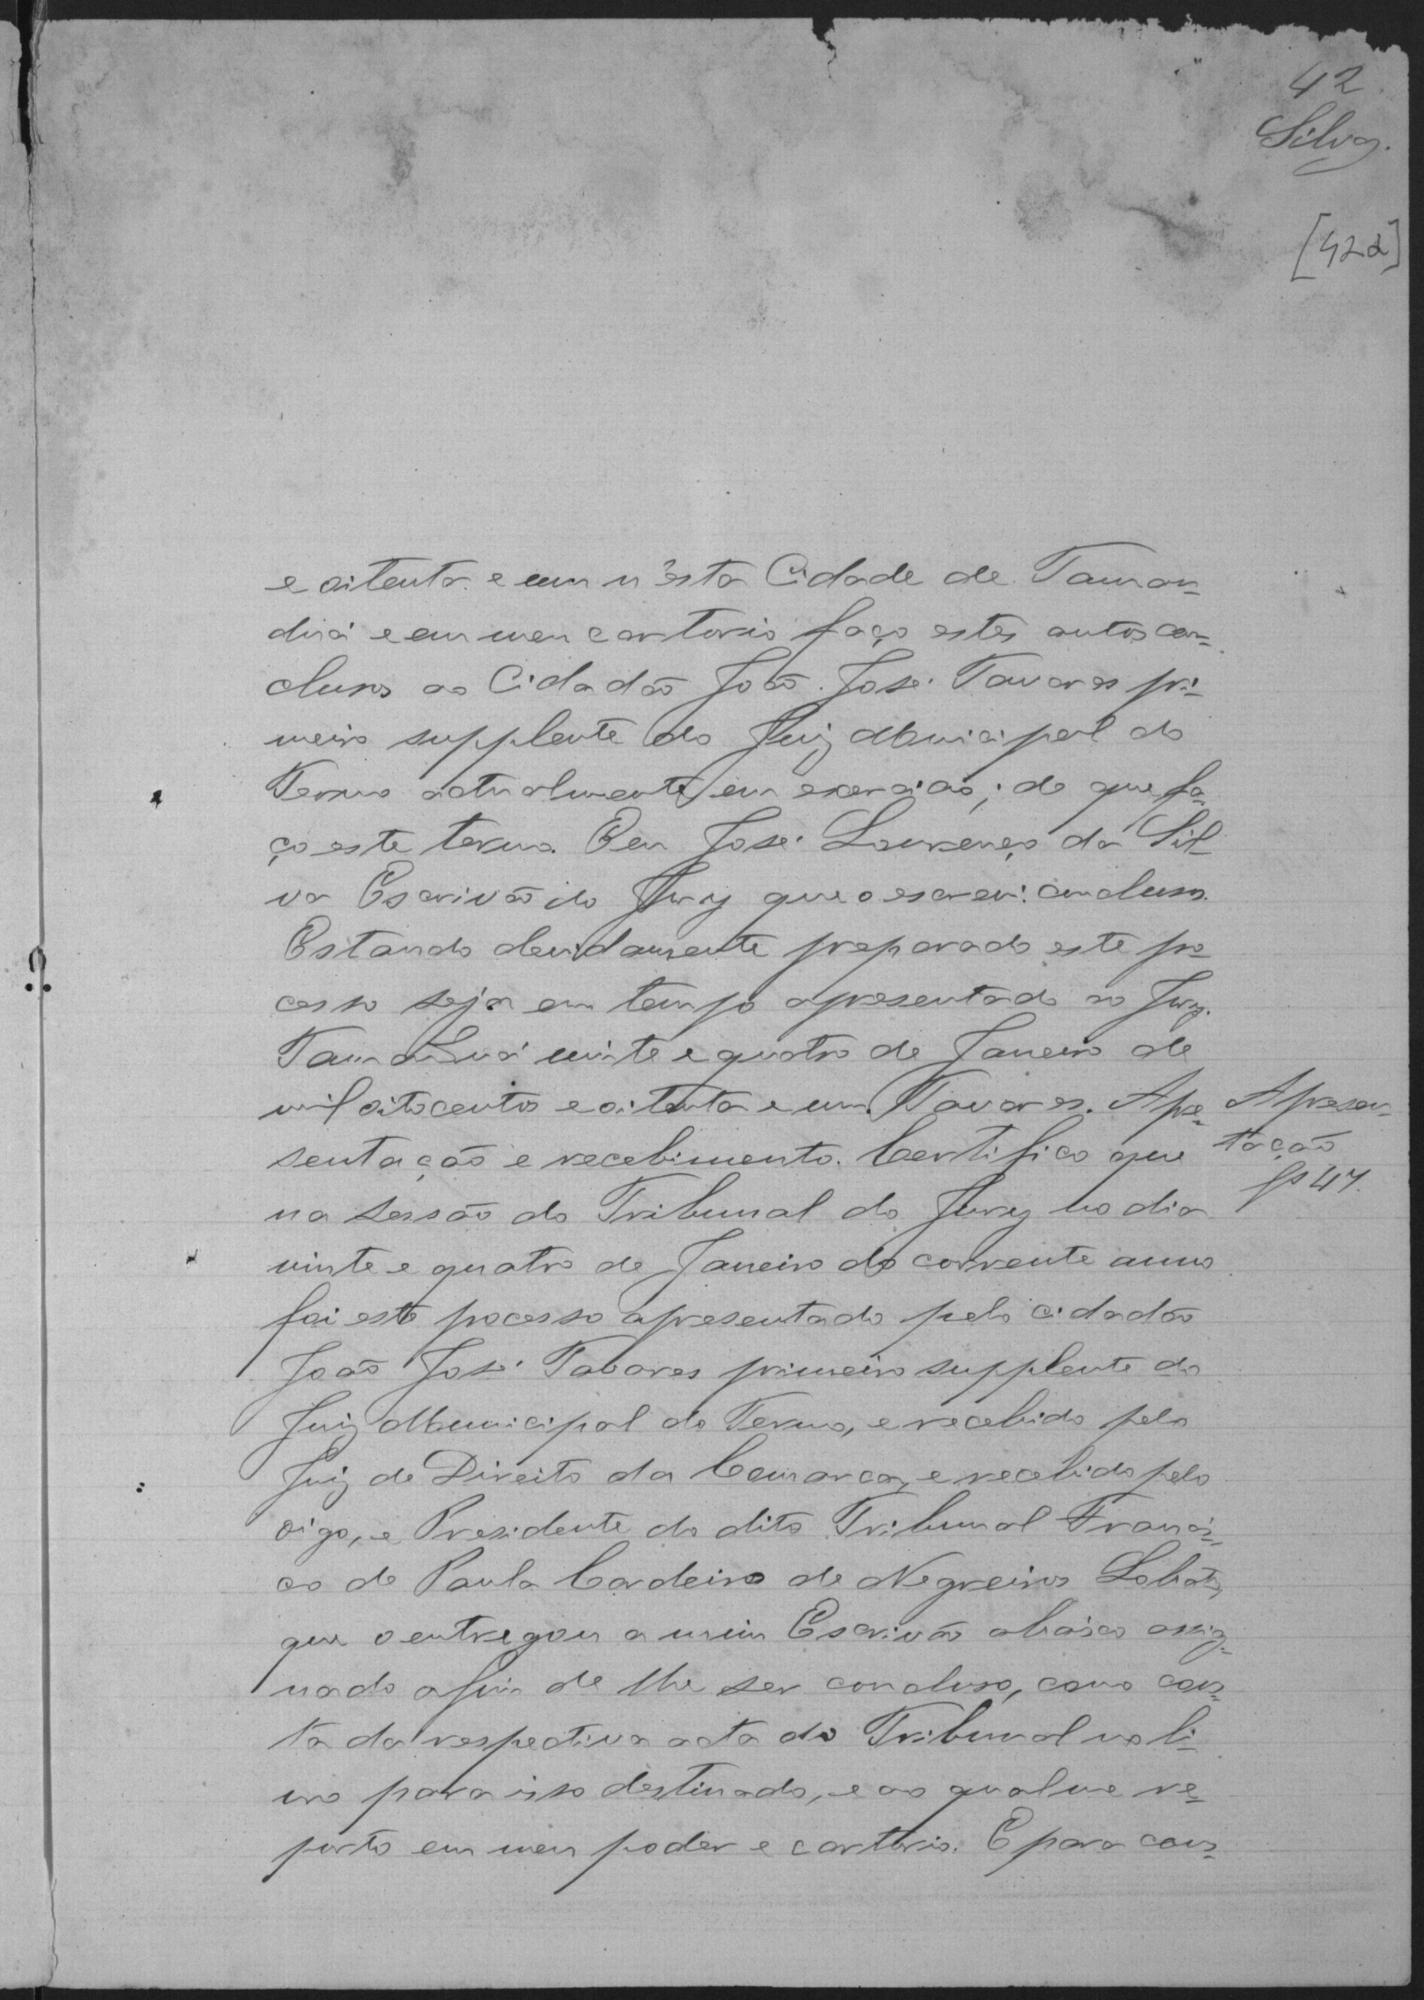 42
Silva.
[42a]
e oitenta e um n'esta Cidade de Taman-
duá e em meu cartorio faço estes autos con-
clusos ao Cidadão João José Tavares pri-
meiro supplente do Juiz Municipal do
Termo actualmente em exercicio; do que fa-
ço este termo. Eu José Lourenço da Sil-
va Escrivão do Jury que o escrevi: conclusos.
Estando devidamente preparado este pro-
cesso seja em tempo apresentado ao Jury.
Tamanduá vinte e quatro de Janeiro de
mil oitocentos e oitenta e um. Tavares. Apre-
sentação e recebimento. Certifico que
Apresen-
tação
fs 47.
na sessão do Tribunal do Jury no dia
vinte e quatro de Janeiro do corrente anno
foi este pocesso apresentado pelo cidadão
João José Tavares primeiro supplente do
Juiz Municipal do Termo, e recebido pelo
Juiz de Direito da Comarca, e recebido pelo
digo, e Presidente do dito Tribunal Francis-
co de Paula Cordeiro de Negreiros Lobato,
que o entregou a mim Escrivão abaixo assig-
nado afim de lhe ser concluso, como cons-
ta da respectiva acta do Tribunal no li-
vro para isso destinado, e ao qual me re-
porto em meu poder e cartorio. E para cons-